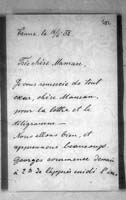 Vienne, le
Très chère Maman,
Je vous remercie de tout
cœur, chère Maman,
pour la lettre et le
télégramme —
Nous allons bien, et
apprenons beaucoup
Georges commence demain
à 2 h de l'après midi l'